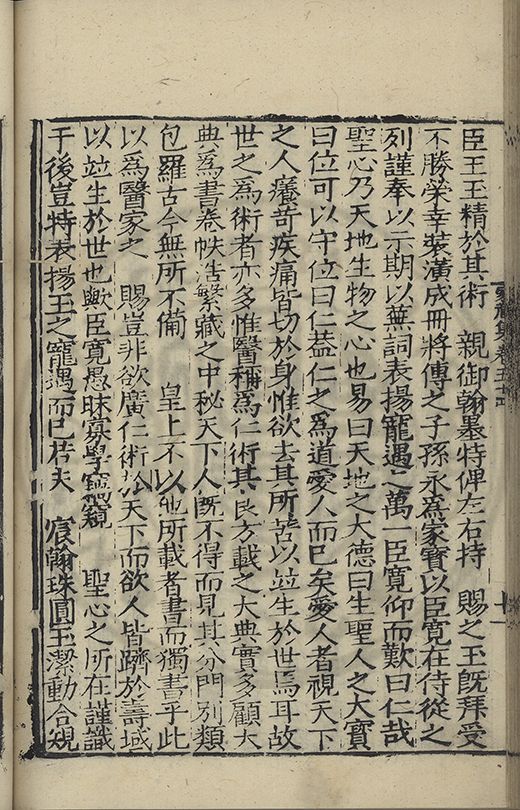 臣王玉精於其術　親御翰墨特俾左右持　賜之玉旣拜受
不勝榮幸裝潢成冊將傳之子孫永爲家寶以臣寬在侍從之
列謹奉以示期以蕪詞表揚寵遇之萬一臣寬仰而歎曰仁哉
聖心乃天地生物之心也易曰天地之大德曰生聖人之大寶
曰位可以守位曰仁葢仁之爲道愛人而已矣愛人者視天下
之人癢苛疾痛皆切於身惟欲去其所苦以竝生於世焉耳故
世之爲術者亦多惟醫稱爲仁術其良方載之大典實多顧大
典爲書卷帙浩繁藏之中秘天下人旣不得而見其分門別類
包羅古今無所不備　皇上不以他所載者書而獨書乎此
以爲醫家之　賜豈非欲廣仁術於天下而欲人皆躋於壽域
以竝生於世也歟臣寬愚昧寡學竊窺　聖心之所在謹識
于後豈特表揚玉之寵遇而已若夫　宸翰珠圓玉潔動合規
家藏集卷五十四
十一